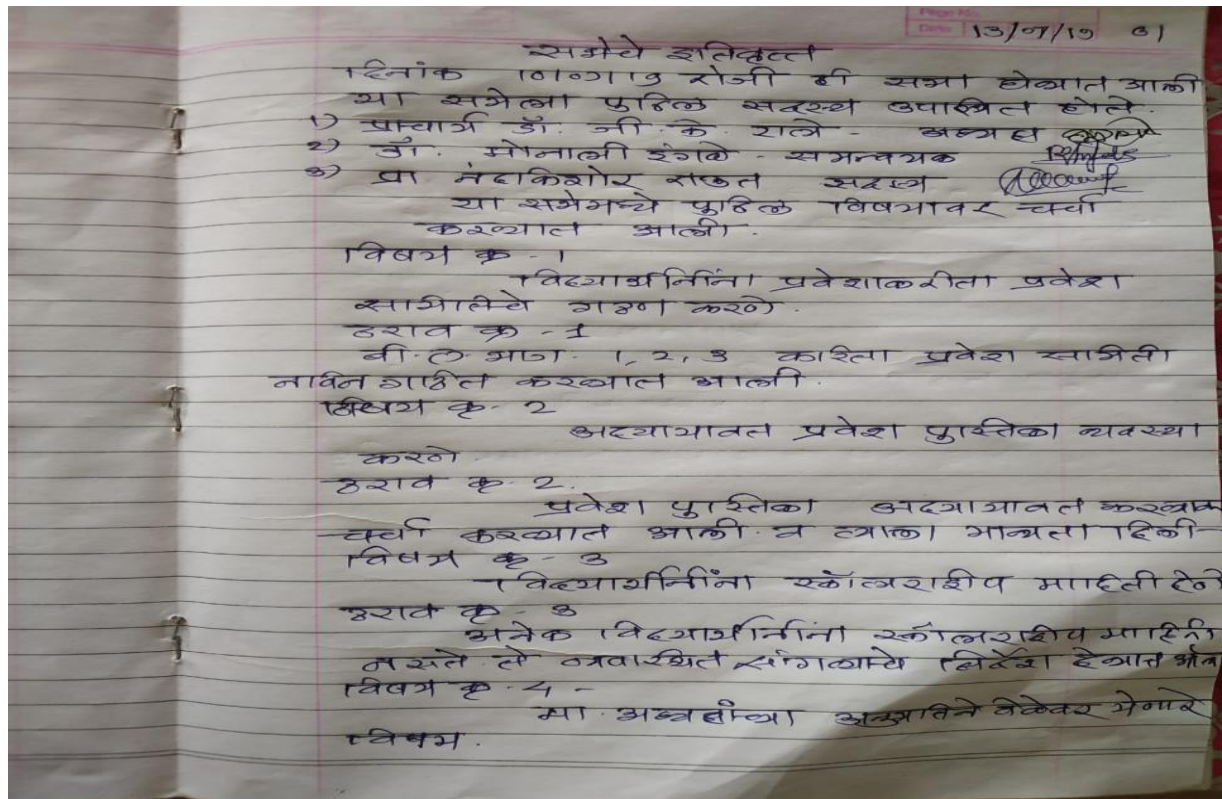 Page No.
Date 13/07/19 01
सभेचे इतिवृत्त
दिनांक रोजी ही सभा घेण्यात आली
या सभेला पुढिल सदस्य उपस्थित होते.
1) प्राचार्य डॉ. जी. के. राले - अध्यक्ष
2) डॉ. मोनाली इंगळे - समन्वयक
3) प्रा नंदकिशोर राऊत सदस्य
या सभेमध्ये पुढिल विषयावर चर्चा
करण्यात आली.
विषय क्र - 1
विद्यार्थीनींना प्रवेशाकरीता प्रवेश
समितीचे गठण करणे.
ठराव क्र - 1
बी. ए. भाग. 1, 2, 3 करिता प्रवेश समिती
नविन गठित करण्यात आली.
विषय क्र. 2
अद्यायावत प्रवेश पुस्तिका व्यवस्था
करणे.
ठराव क्र. 2.
प्रवेश पुस्तिका अद्यायावत
चर्चा करण्यात आली व त्याला मान्यता दिली
विषय क्र - 3
विद्यार्थीनींना स्कॉलरशीप माहिती देणे
ठराव क्र - 3
अनेक विद्यार्थीनींना स्कॉलरशीप माहिती
नसते ते व्यवस्थित सांगण्याचे निर्देश देण्यात
विषय क्र. 4 -
मा. अध्यक्षांच्या अनुमतिने वेळेवर येणारे
विषय.